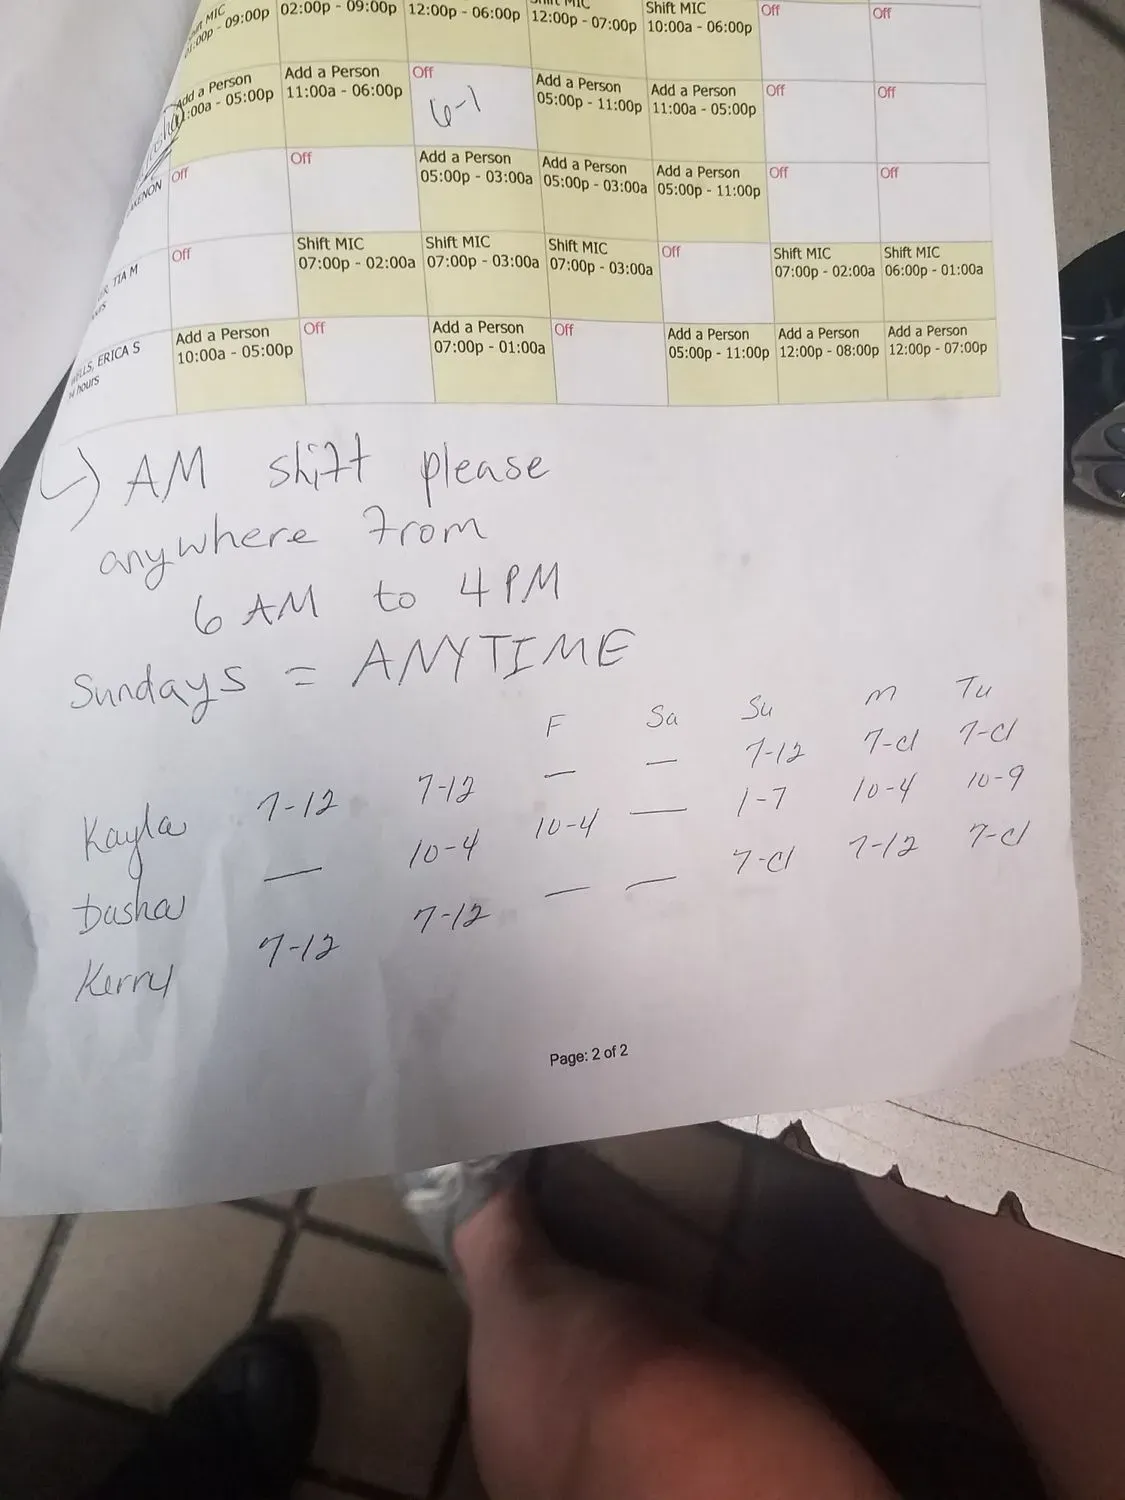 Shift MIC Shift MIC
01:00p - 09:00p 02:00p - 09:00p 12:00p - 06:00p 12:00p - 07:00p 10:00a - 06:00p Off Off
Add a Person Add a Person Off Add a Person Add a Person Off Off
:00a - 05:00p 11:00a - 06:00p 6-1 05:00p - 11:00p 11:00a - 05:00p
Off Off Add a Person Add a Person Add a Person Off Off
AKENON 05:00p - 03:00a 05:00p - 03:00a 05:00p - 11:00p
Off Shift MIC Shift MIC Shift MIC Off Shift MIC Shift MIC
TIA M 07:00p - 02:00a 07:00p - 03:00a 07:00p - 03:00a 07:00p - 02:00a 06:00p - 01:00a
Add a Person Off Add a Person Off Add a Person Add a Person Add a Person
ERICA S 10:00a - 05:00p 07:00p - 01:00a 05:00p - 11:00p 12:00p - 08:00p 12:00p - 07:00p
hours
AM shift please
anywhere from
6 AM to 4 PM
Sundays = ANYTIME
F Sa Su M Tu
Kayla 7-12 7-12 — — 7-12 7-cl 7-cl
Dasha — 10-4 10-4 — 1-7 10-4 10-9
Kerry 7-12 7-12 — — 7-cl 7-12 7-cl
Page: 2 of 2